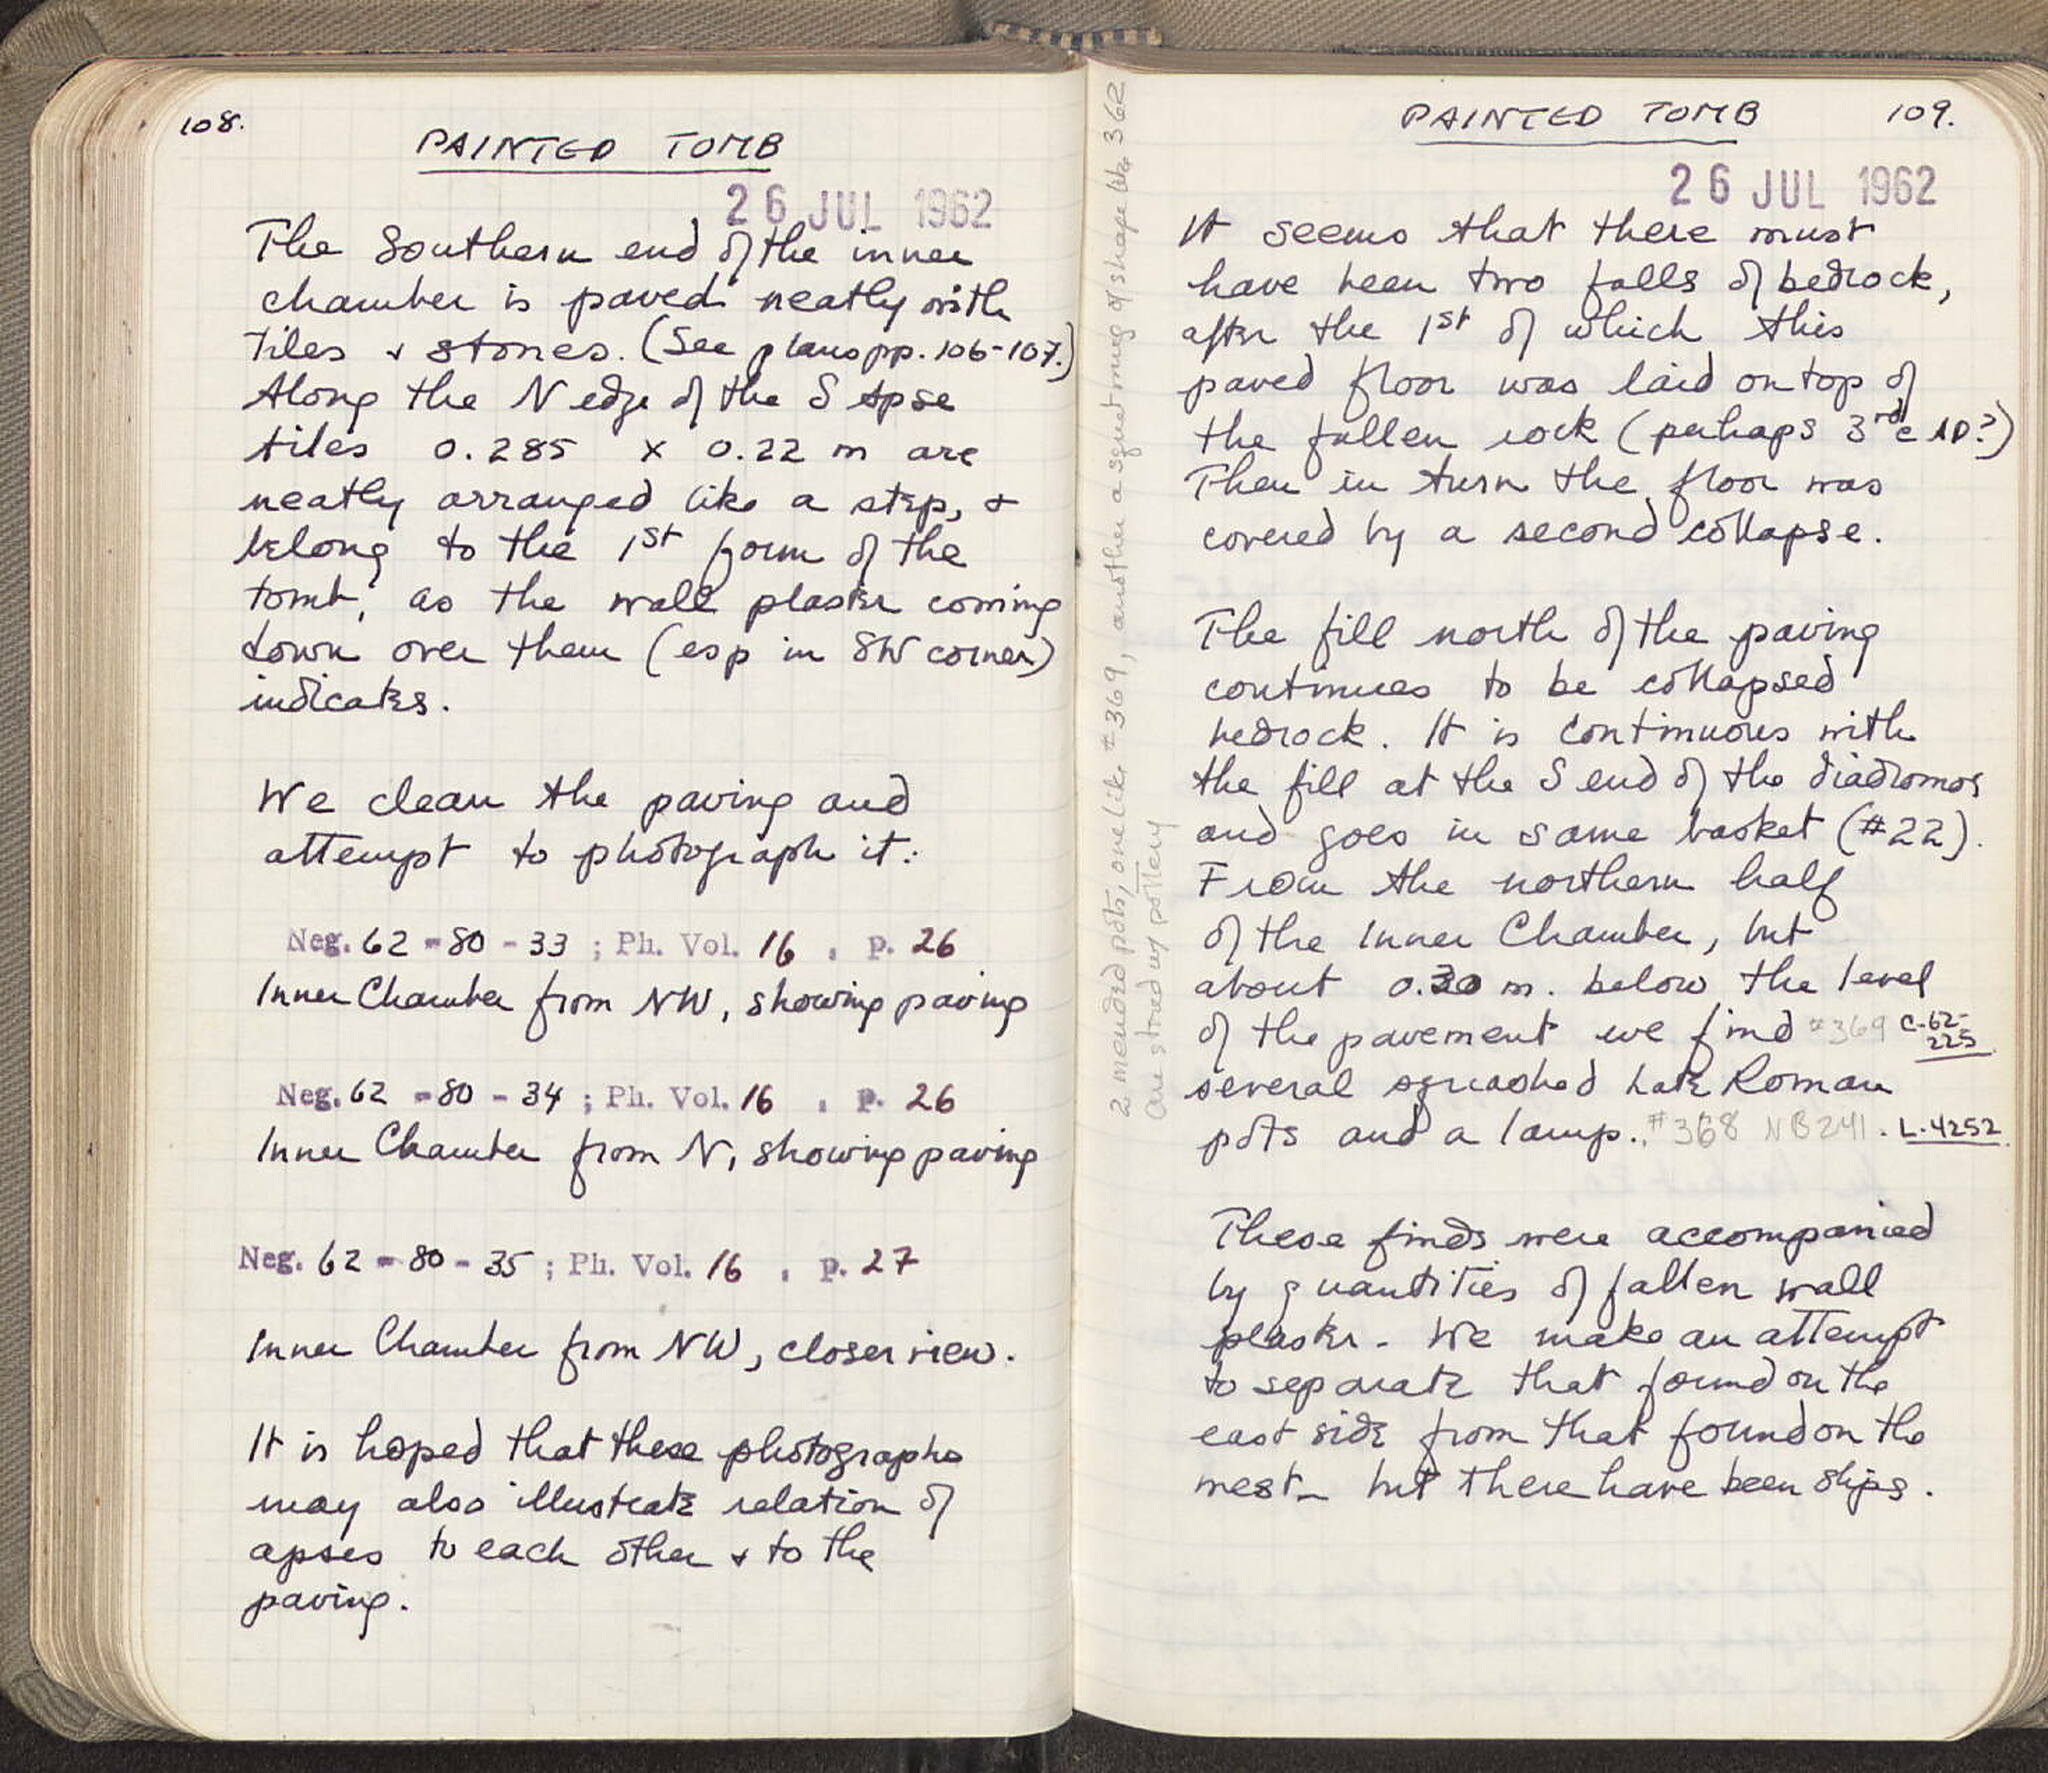 108.
PAINTED TOMB
26 JUL 1962
The Southern end of the inner
chamber is paved neatly with
tiles + stones. (See plans pp. 106-107.)
Along the N edge of the S Apse
tiles 0.285 x 0.22 m are
neatly arranged like a step, +
belong to the 1st form of the
tomb, as the wall plaster coming
down over them (esp in SW corner)
indicates.
We clean the paving and
attempt to photograph it:
Neg. 62-80-33; Ph. Vol. 16, p. 26
Inner Chamber from NW, showing paving
Neg. 62-80-34; Ph. Vol. 16, p. 26
Inner Chamber from N, showing paving
Neg. 62-80-35; Ph. Vol. 16, p. 27
Inner Chamber from NW, closer view.
It is hoped that these photographs
may also illustrate relation of
apses to each other + to the
paving.
PAINTED TOMB 109.
26 JUL 1962
It seems that there must
have been two falls of bedrock,
after the 1st of which this
paved floor was laid on top of
the fallen rock (perhaps 3rd c AD?)
Then in turn the floor was
covered by a second collapse.
The fill north of the paving
continues to be collapsed
bedrock. It is continuous with
the fill at the S end of the diadromos
and goes in same basket (#22).
From the northern half
of the Inner Chamber, but
about 0.30 m. below the level
of the pavement we find #369 C-62-225
several squashed Late Roman
pots and a lamp. #368 NB241. L-4252
These finds were accompanied
by quantities of fallen wall
plaster - We make an attempt
to separate that found on the
east side from that found on the
west - but there have been slips.
2 mended pots, one like #369, another a squat mug of shape like 362
are stored w/ pottery